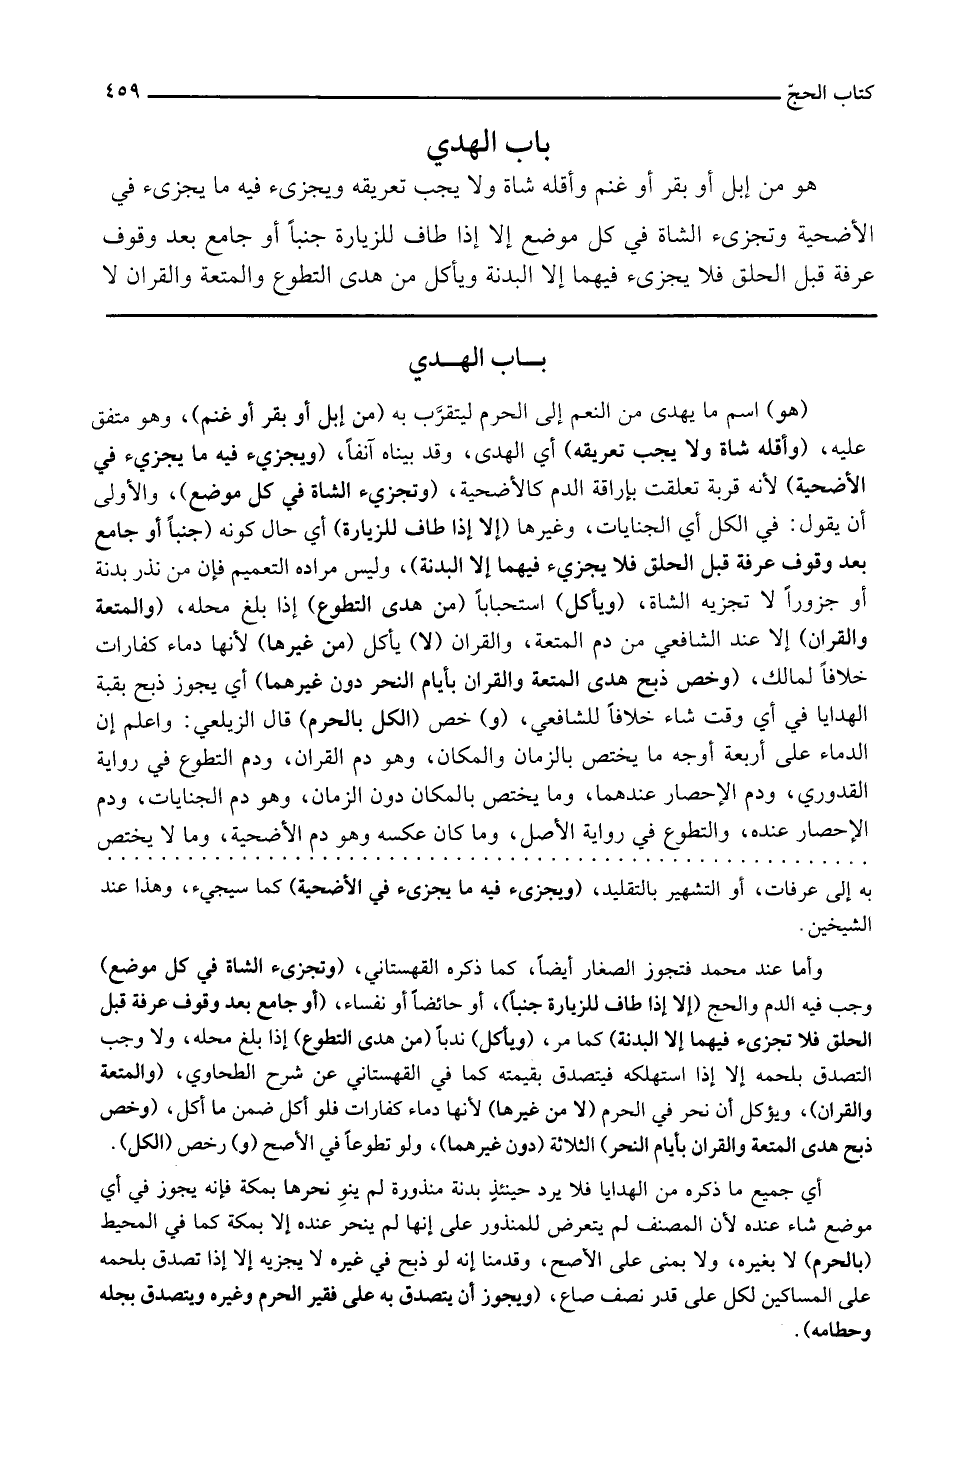 كتاب الحجّ ٤٥٩
باب الهدي
هو من إبل أو بقر أو غنم وأقله شاة ولا يجب تعريقه ويجزىء فيه ما يجزىء في
الأضحية وتجزىء الشاة في كل موضع إلا إذا طاف للزيارة جنباً أو جامع بعد وقوف
عرفة قبل الحلق فلا يجزىء فيهما إلا البدنة ويأكل من هدى التطوع والمتعة والقران لا
بــاب الهــدي
(هو) اسم ما يهدى من النعم إلى الحرم ليتقرَّب به (من إبل أو بقر أو غنم)، وهو متفق
عليه، (وأقله شاة ولا يجب تعريقه) أي الهدى، وقد بيناه آنفاً، (ويجزيء فيه ما يجزيء في
الأضحية) لأنه قربة تعلقت بإراقة الدم كالأضحية، (وتجزيء الشاة في كل موضع)، والأولى
أن يقول: في الكل أي الجنايات، وغيرها (إلا إذا طاف للزيارة) أي حال كونه (جنباً أو جامع
بعد وقوف عرفة قبل الحلق فلا يجزيء فيهما إلا البدنة)، وليس مراده التعميم فإن من نذر بدنة
أو جزوراً لا تجزيه الشاة، (ويأكل) استحباباً (من هدى التطوع) إذا بلغ محله، (والمتعة
والقران) إلا عند الشافعي من دم المتعة، والقران (لا) يأكل (من غيرها) لأنها دماء كفارات
خلافاً لمالك، (وخص ذبح هدى المتعة والقران بأيام النحر دون غيرهما) أي يجوز ذبح بقبة
الهدايا في أي وقت شاء خلافاً للشافعي، (و) خص (الكل بالحرم) قال الزيلعي: واعلم إن
الدماء على أربعة أوجه ما يختص بالزمان والمكان، وهو دم القران، ودم التطوع في رواية
القدوري، ودم الإحصار عندهما، وما يختص بالمكان دون الزمان، وهو دم الجنايات، ودم
الإحصار عنده، والتطوع في رواية الأصل، وما كان عكسه وهو دم الأضحية، وما لا يختص
به إلى عرفات، أو التشهير بالتقليد، (ويجزىء فيه ما يجزىء في الأضحية) كما سيجيء، وهذا عند
الشيخين.
وأما عند محمد فتجوز الصغار أيضاً، كما ذكره القهستاني، (وتجزىء الشاة في كل موضع)
وجب فيه الدم والحج (إلا إذا طاف للزيارة جنباً)، أو حائضاً أو نفساء، (أو جامع بعد وقوف عرفة قبل
الحلق فلا تجزىء فيهما إلا البدنة) كما مر، (ويأكل) ندباً (من هدى التطوع) إذا بلغ محله، ولا وجب
التصدق بلحمه إلا إذا استهلكه فيتصدق بقيمته كما في القهستاني عن شرح الطحاوي، (والمتعة
والقران)، ويؤكل أن نحر في الحرم (لا من غيرها) لأنها دماء كفارات فلو أكل ضمن ما أكل، (وخص
ذبح هدى المتعة والقران بأيام النحر) الثلاثة (دون غيرهما)، ولو تطوعاً في الأصح (و) رخص (الكل).
أي جميع ما ذكره من الهدايا فلا يرد حينئذٍ بدنة منذورة لم ينوِ نحرها بمكة فإنه يجوز في أي
موضع شاء عنده لأن المصنف لم يتعرض للمنذور على إنها لم ينحر عنده إلا بمكة كما في المحيط
(بالحرم) لا بغيره، ولا بمنى على الأصح، وقدمنا إنه لو ذبح في غيره لا يجزيه إلا إذا تصدق بلحمه
على المساكين لكل على قدر نصف صاع، (ويجوز أن يتصدق به على فقير الحرم وغيره ويتصدق بجله
وحطامه).